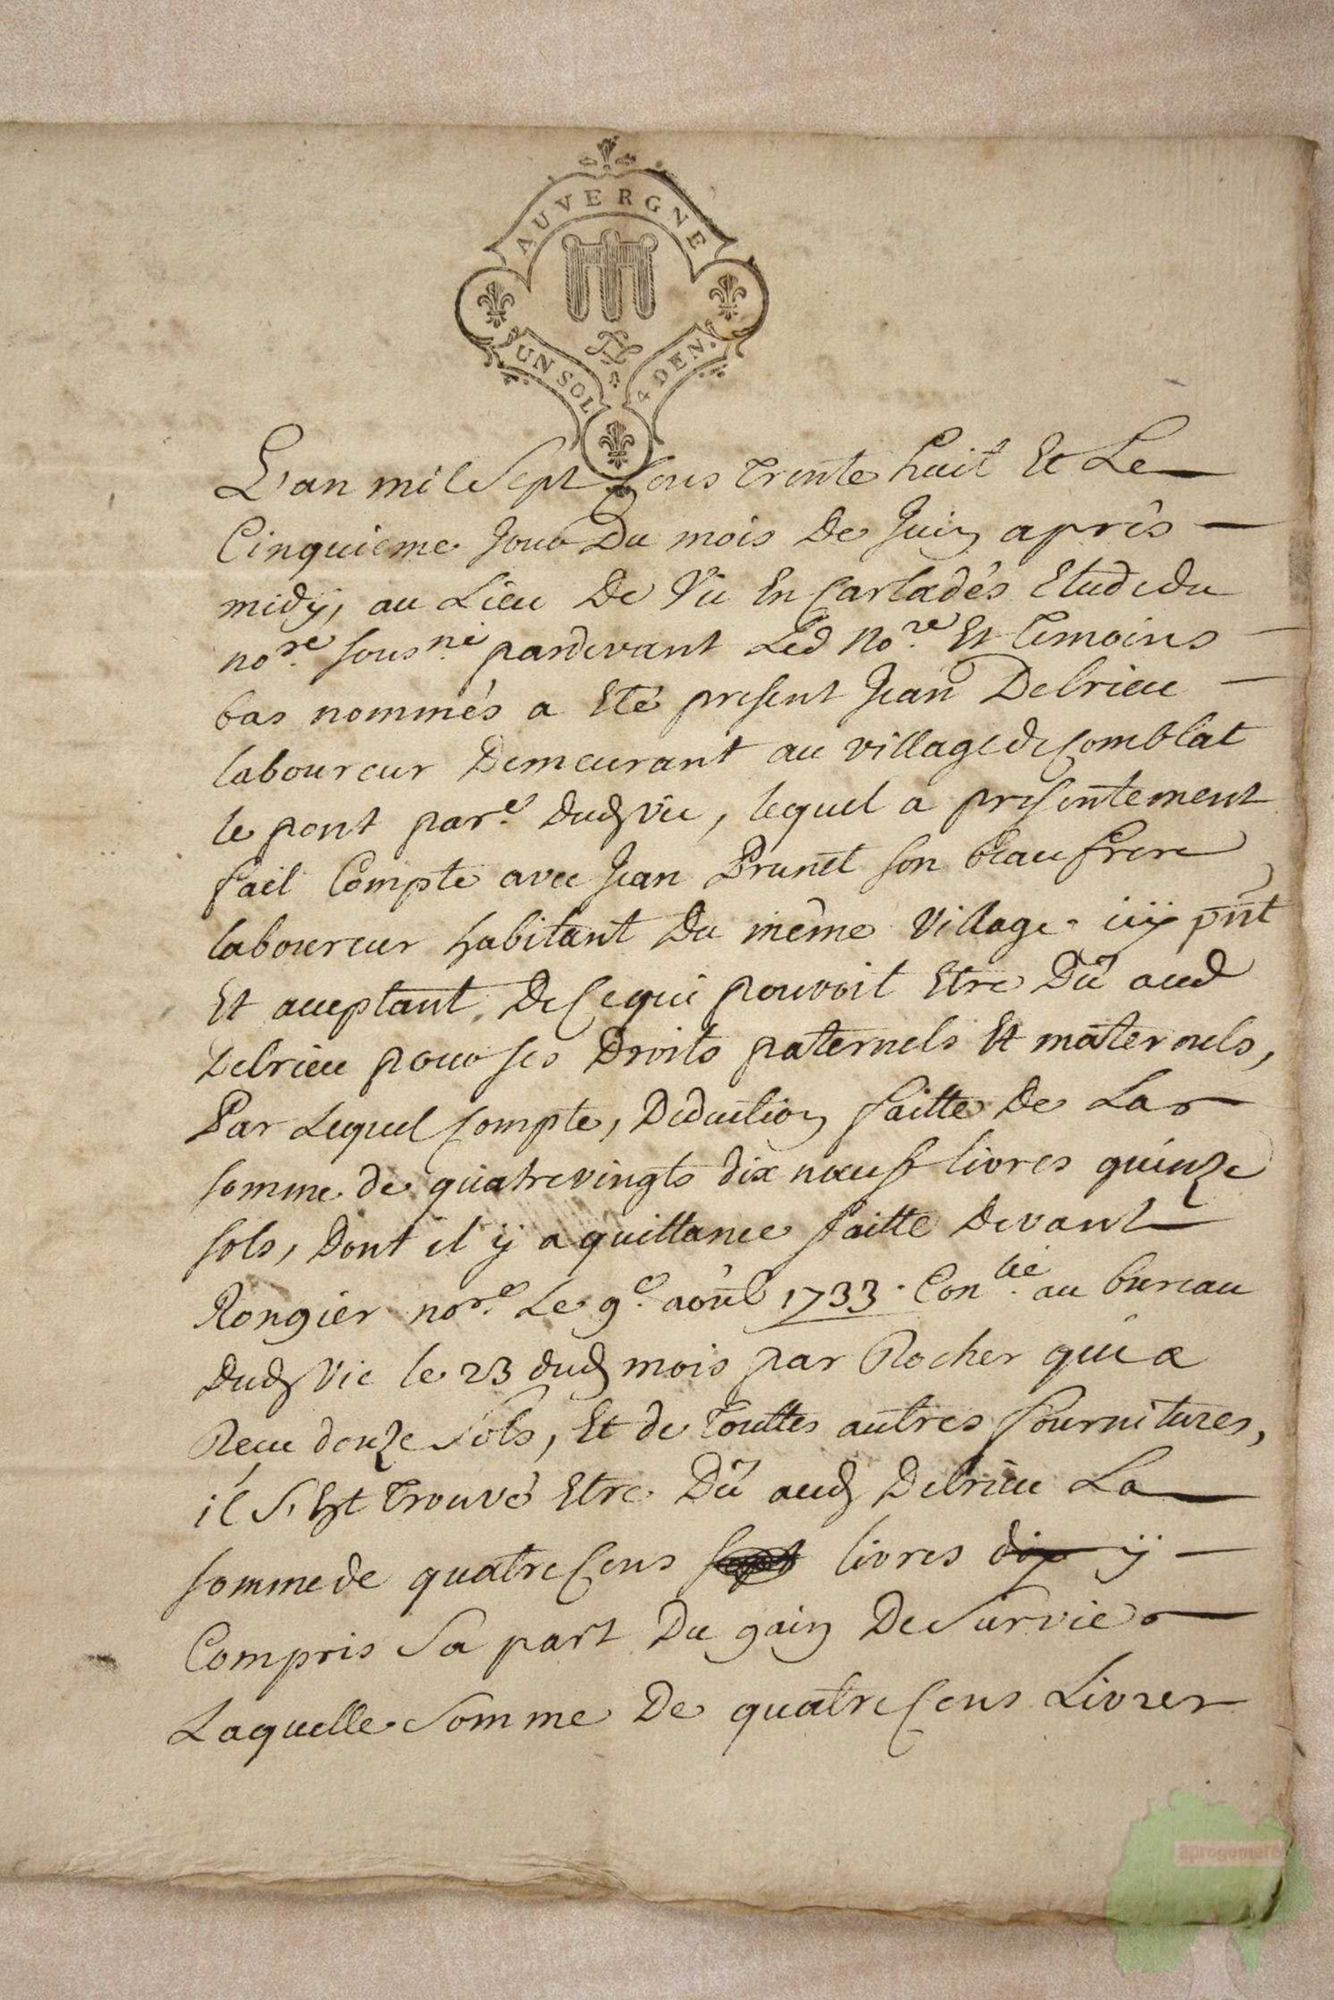 AUVERGNE
UN SOL 4 DEN.
L'an mil sept Cens trente huit Et Le
Cinquieme Jour Du mois De Juin après
midÿ, au Lieu De Vic En Carladés Etude du
no.re sous.né pardevant Led No.re Et temoins
bas nommés a Eté present Jean Delrieu
laboureur Demeurant au village de Comblat
le pont par.e Dud Vic, lequel a presentement
fait Compte avec Jean Prunet son beaufrere
laboureur habitant Du même Village. icÿ pñt
Et acceptant, De Ce qui pouvoit Etre Dû aud
Delrieu pour ses Droits paternels Et maternels,
Par Lequel Compte, Deduction faitte De La
somme de quatrevingts dix nœuf livres quinze
sols, Dont il ÿ a quittance faitte Devant
Rongier no.re Le 9.e aôut 1733. Con.lié au bureau
Dud Vic le 23 dud mois par Rocher qui a
Recu douze sols, Et de touttes autres fournitures,
il s'Est trouvé Etre Dû aud Delrieu La
somme de quatre Cens sept livres dix ÿ
Compris Sa part Du gain De Survie
Laquelle Somme De quatre Cens Livres
aprogemere